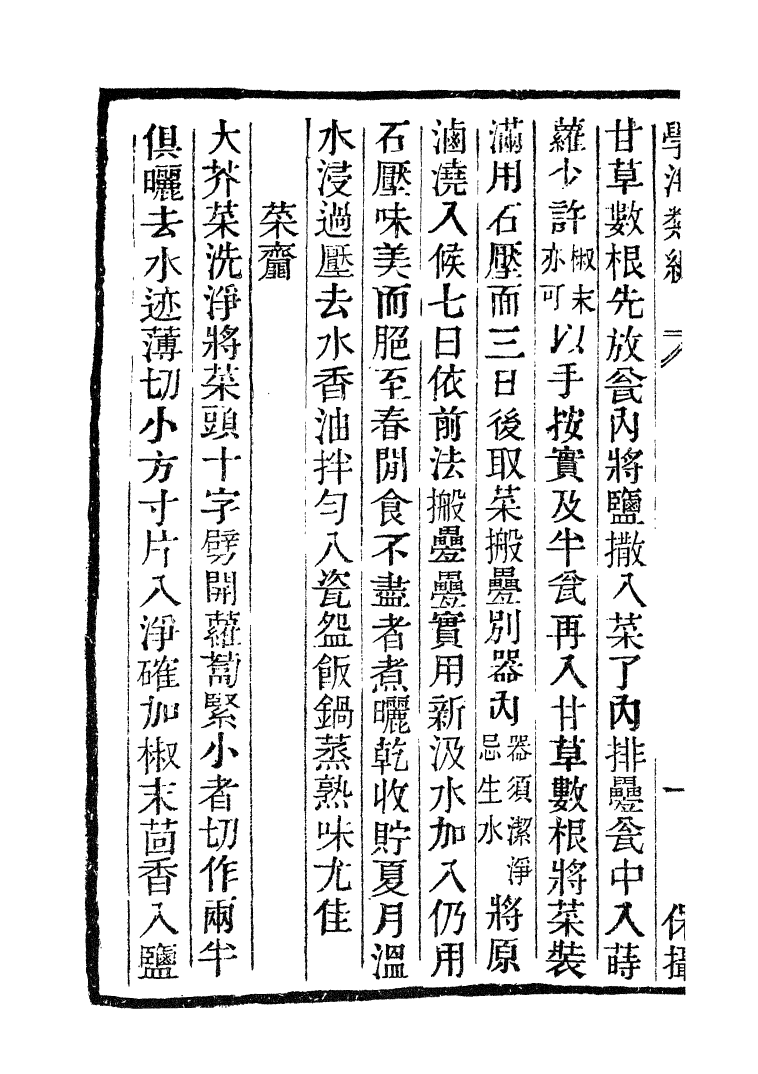 學海類編 一 保攝
甘草數根先放瓮內將鹽撒入菜了內排疊瓮中入蒔
蘿少許椒末亦可以手按實及半瓮再入甘草數根將菜裝
滿用石壓而三日後取菜搬疊別器內器須潔淨忌生水將原
滷澆入候七日依前法搬疊疊實用新汲水加入仍用
石壓味美而脆至春閒食不盡者煮曬乾收貯夏月溫
水浸過壓去水香油拌勻入瓷盌飯鍋蒸熟味尤佳
菜齏
大芥菜洗淨將菜頭十字劈開蘿蔔緊小者切作兩半
俱曬去水迹薄切小方寸片入淨確加椒末茴香入鹽